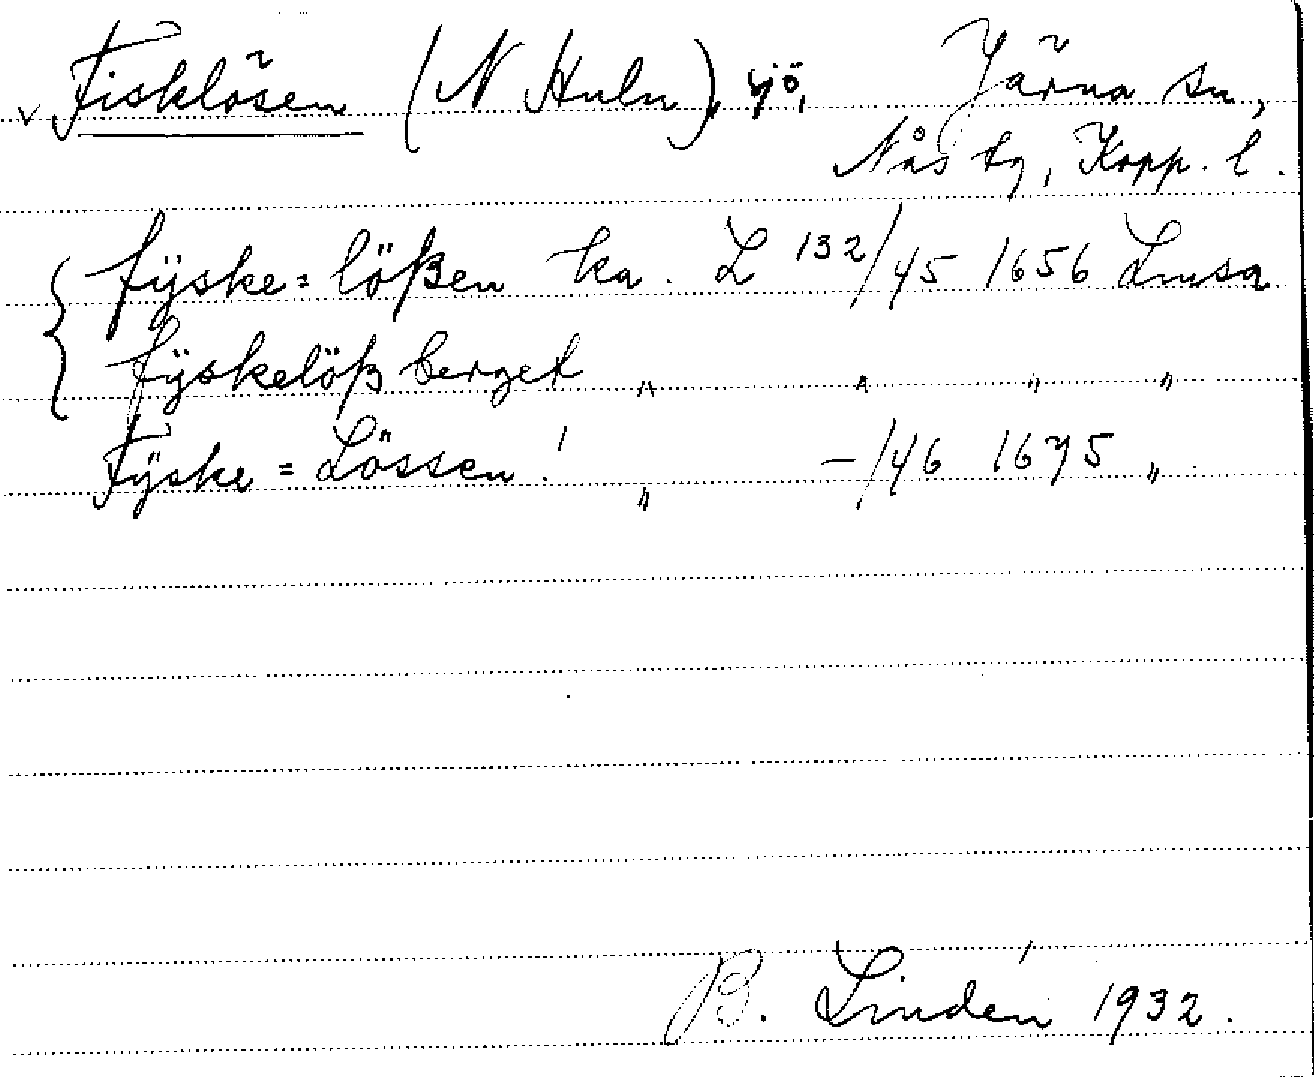 v Fisklösen (N Huln), sjö, Järna sn,
Nås tg, Kopp. l.
fÿske=lößen ka. L 132/45 1656 Lmsa
fÿskelöß berget " " " "
Fÿske=Lössen! " -/46 1675 "
B. Lindén 1932.